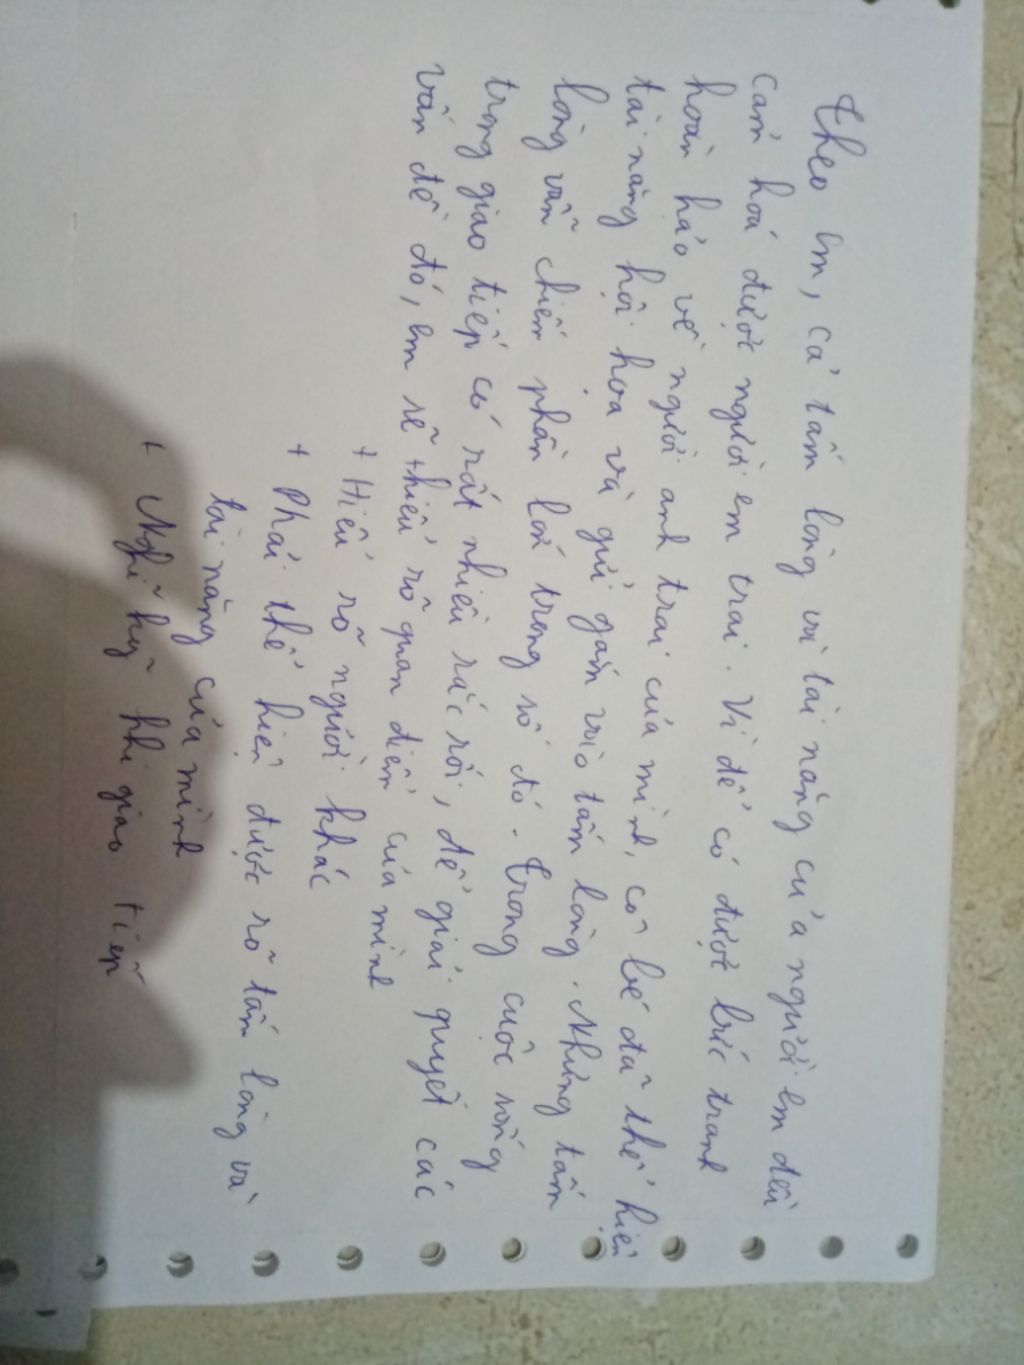 Theo em, cả tấm lòng và tài năng của người em đều
cảm hoá được người em trai. Vì để có được bức tranh
hoàn hảo về người anh trai của mình, cô bé đã thể hiện
tài năng hội hoạ và gửi gắm vào tấm lòng. Nhưng tấm
lòng vẫn chiếm phần lớn trong số đó. Trong cuộc sống
trong giao tiếp có rất nhiều rắc rối, để giải quyết các
vấn đề đó, em sẽ thiểu rõ quan điểm của mình
+ Hiểu rõ người khác
+ Phải thể hiện được rõ tấm lòng và
tài năng của mình
+ Nghĩ kỹ khi giao tiếp